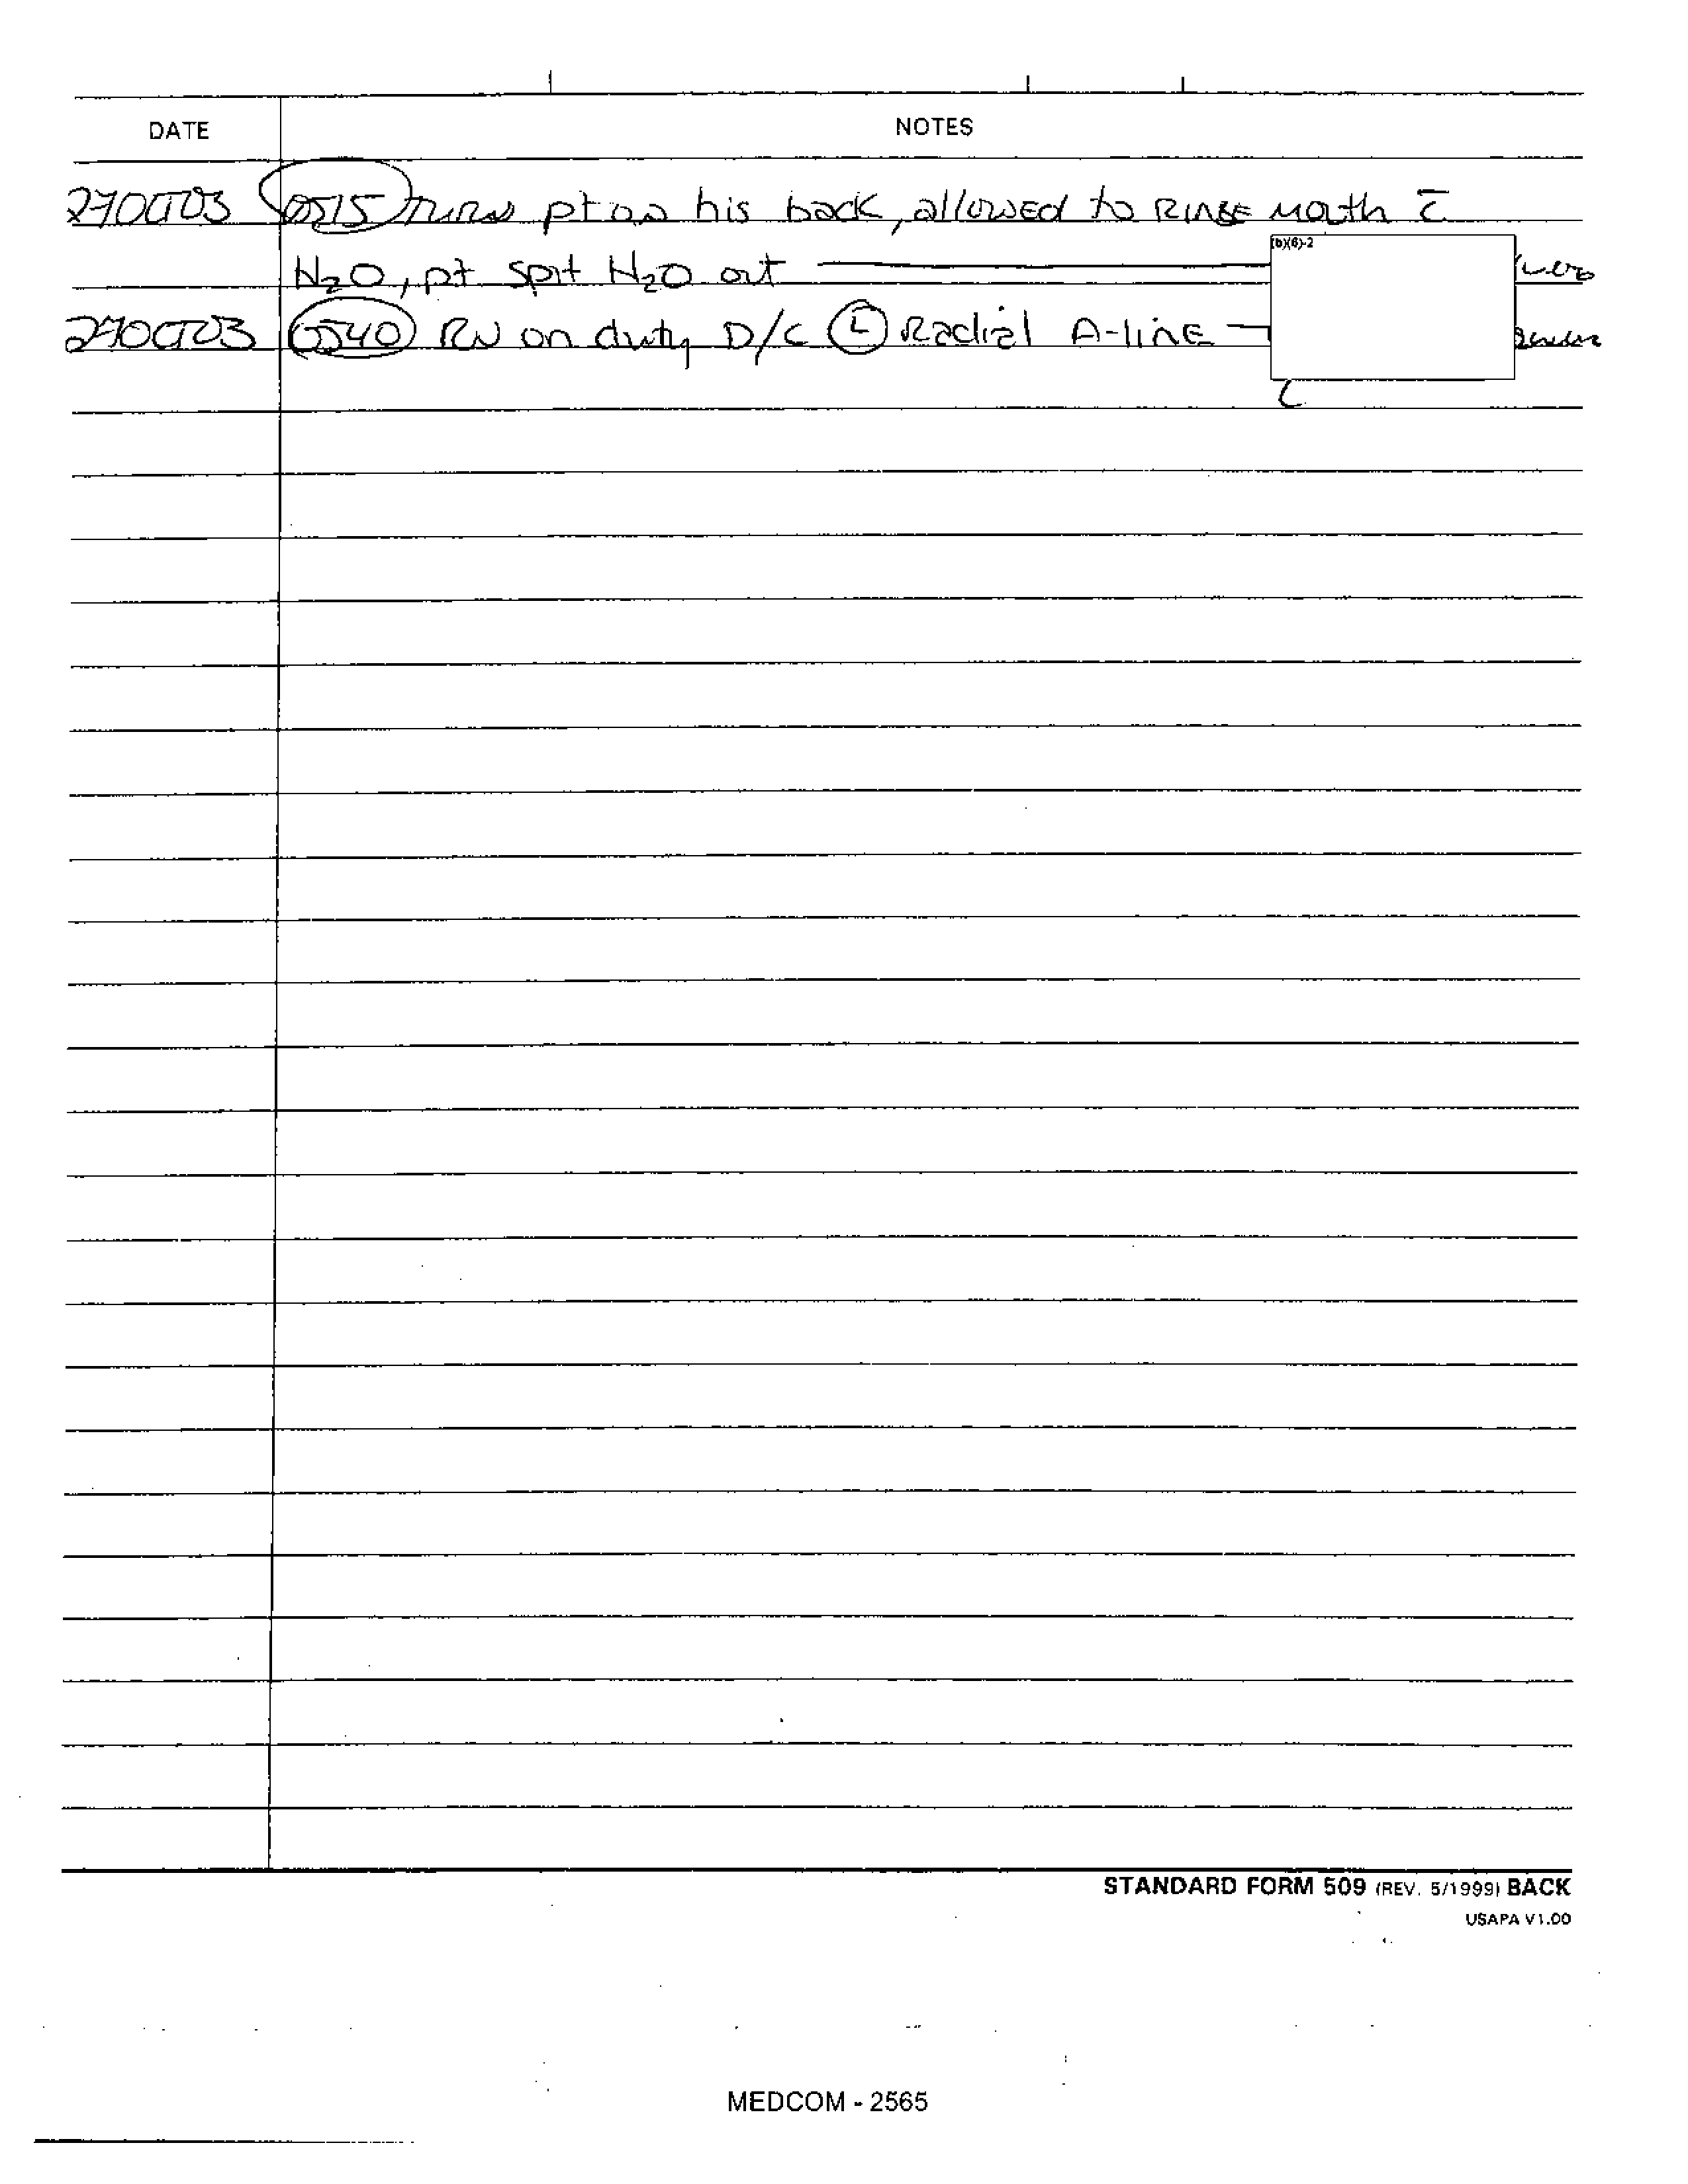 DATE NOTES
27OCT03 0515 Turned pt on his back, allowed to RINSE mouth c̄
(b)(6)-2
H2O, pt spit H2O out
27OCT03 0540 RN on duty D/C Ⓛ Radial A-line
STANDARD FORM 509 (REV. 5/1999) BACK
USAPA V1.00
MEDCOM - 2565